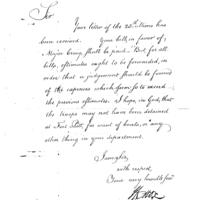 Sir
Your letter of the 25th Ultimo has
been received. Your bill, in favor of
Major Craig shall be paid. But for all
bills, estimates ought to be forwarded, in
order that a judgement should be formed
of the expences which form for to exceed
the previous estimates. I hope, in God, that
the troops may not have been detained
at Fort Pitt, for want of boats, or any
other thing in your department.
I am Sir,
with respect,
Your very humble Ser